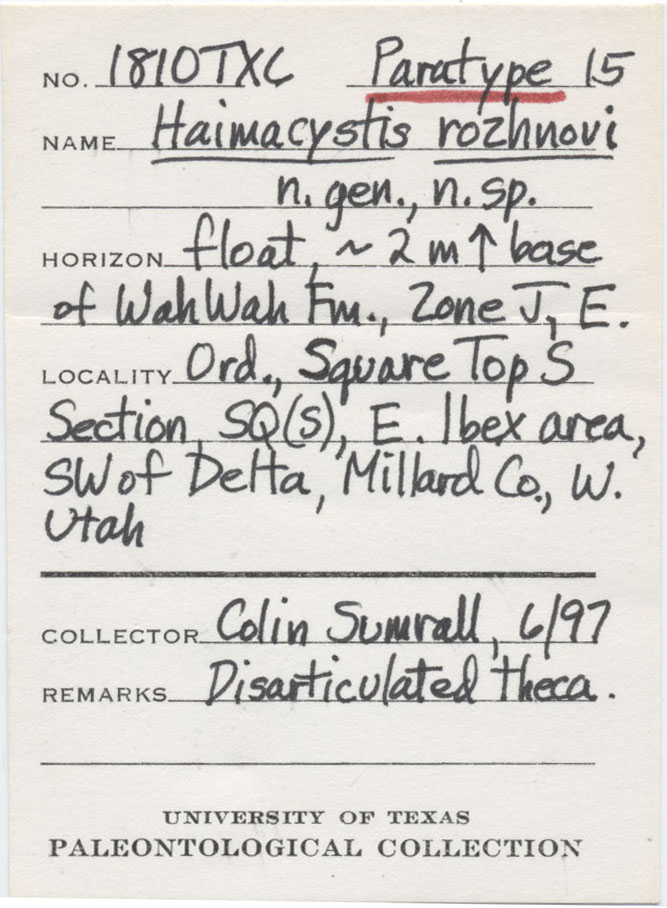 NO. 1810TXC Paratype 15
NAME Haimacystis rozhnovi
n. gen., n. sp.
HORIZON float, ~ 2 m ↑ base
of Wah Wah Fm., Zone J, E.
LOCALITY Ord., Square Top S
Section, SQ(S), E. Ibex area,
SW of Delta, Millard Co., W.
Utah
COLLECTOR Colin Sumrall, 6/97
REMARKS Disarticulated theca.
UNIVERSITY OF TEXAS
PALEONTOLOGICAL COLLECTION